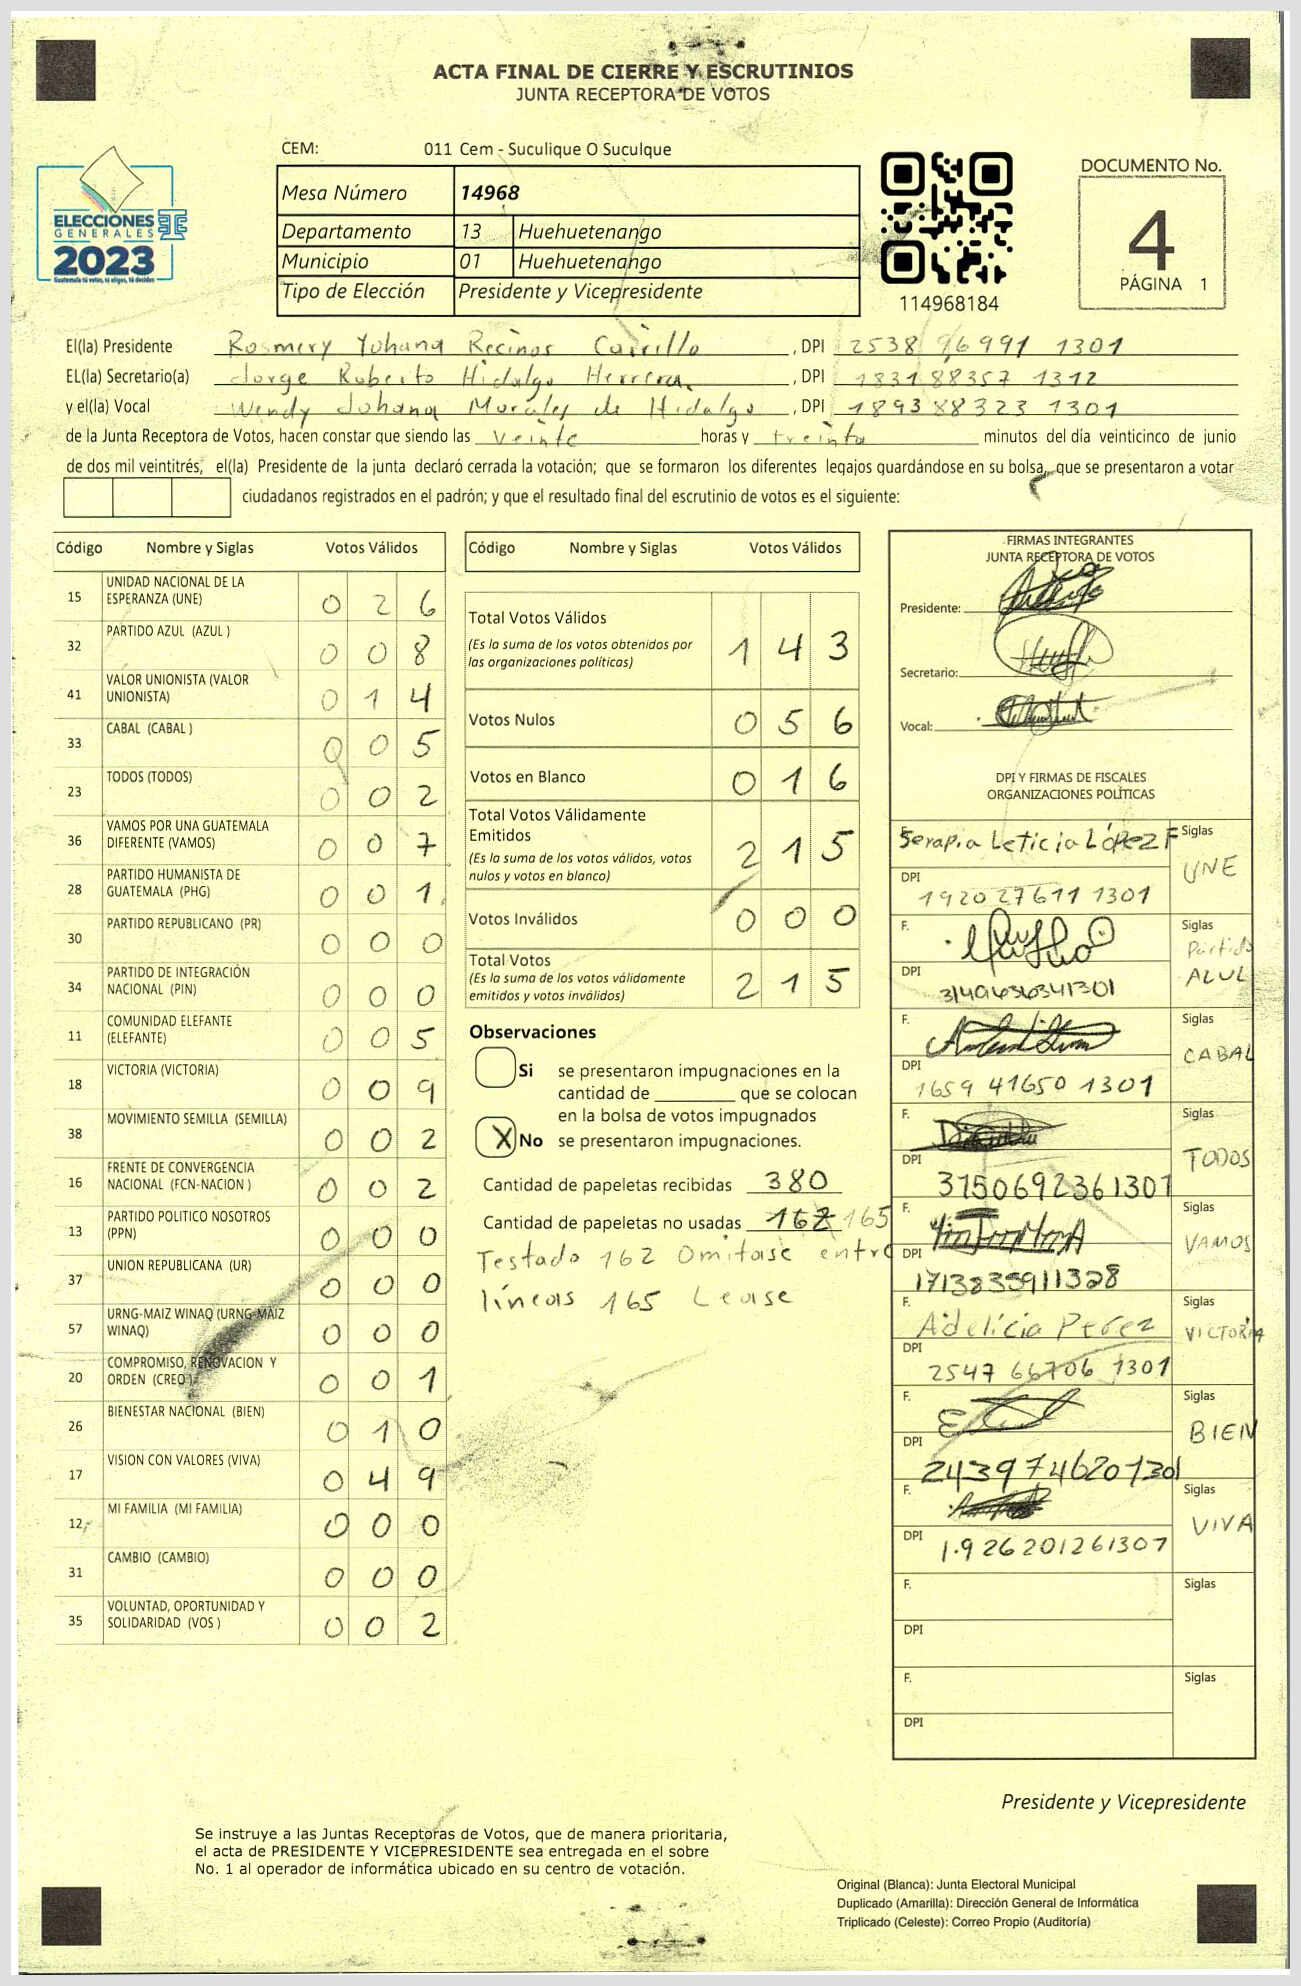 ACTA FINAL DE CIERRE Y ESCRUTINIOS
JUNTA RECEPTORA DE VOTOS
CEM: 011 Cem - Suculique O Suculque
Mesa Número 14968
Departamento 13 Huehuetenango
Municipio 01 Huehuetenango
Tipo de Elección Presidente y Vicepresidente
ELECCIONES
GENERALES
2023
Guatemala tú votas, tú eliges, tú decides
114968184
DOCUMENTO No.
4
PÁGINA 1
El(la) Presidente Rosmery Yohana Recinos Carrillo , DPI 2538 96991 1301
EL(la) Secretario(a) Jorge Roberto Hidalgo Herrera , DPI 1831 88357 1312
y el(la) Vocal Wendy Johana Morales de Hidalgo , DPI 1893 88323 1301
de la Junta Receptora de Votos, hacen constar que siendo las veinte horas y treinta minutos del día veinticinco de junio
de dos mil veintitrés, el(la) Presidente de la junta declaró cerrada la votación; que se formaron los diferentes legajos guardándose en su bolsa, que se presentaron a votar
ciudadanos registrados en el padrón; y que el resultado final del escrutinio de votos es el siguiente:
Código Nombre y Siglas Votos Válidos
15 UNIDAD NACIONAL DE LA ESPERANZA (UNE) 0 2 6
32 PARTIDO AZUL (AZUL ) 0 0 8
41 VALOR UNIONISTA (VALOR UNIONISTA) 0 1 4
33 CABAL (CABAL ) 0 0 5
23 TODOS (TODOS) 0 0 2
36 VAMOS POR UNA GUATEMALA DIFERENTE (VAMOS) 0 0 7
28 PARTIDO HUMANISTA DE GUATEMALA (PHG) 0 0 1
30 PARTIDO REPUBLICANO (PR) 0 0 0
34 PARTIDO DE INTEGRACIÓN NACIONAL (PIN) 0 0 0
11 COMUNIDAD ELEFANTE (ELEFANTE) 0 0 5
18 VICTORIA (VICTORIA) 0 0 9
38 MOVIMIENTO SEMILLA (SEMILLA) 0 0 2
16 FRENTE DE CONVERGENCIA NACIONAL (FCN-NACION ) 0 0 2
13 PARTIDO POLITICO NOSOTROS (PPN) 0 0 0
37 UNION REPUBLICANA (UR) 0 0 0
57 URNG-MAIZ WINAQ (URNG-MAIZ WINAQ) 0 0 0
20 COMPROMISO, RENOVACION Y ORDEN (CREO ) 0 0 1
26 BIENESTAR NACIONAL (BIEN) 0 1 0
17 VISION CON VALORES (VIVA) 0 4 9
12 MI FAMILIA (MI FAMILIA) 0 0 0
31 CAMBIO (CAMBIO) 0 0 0
35 VOLUNTAD, OPORTUNIDAD Y SOLIDARIDAD (VOS ) 0 0 2
Código Nombre y Siglas Votos Válidos
Total Votos Válidos 1 4 3
(Es la suma de los votos obtenidos por
las organizaciones políticas)
Votos Nulos 0 5 6
Votos en Blanco 0 1 6
Total Votos Válidamente
Emitidos 2 1 5
(Es la suma de los votos válidos, votos
nulos y votos en blanco)
Votos Inválidos 0 0 0
Total Votos 2 1 5
(Es la suma de los votos válidamente
emitidos y votos inválidos)
Observaciones
Si se presentaron impugnaciones en la
cantidad de ________ que se colocan
en la bolsa de votos impugnados
X No se presentaron impugnaciones.
Cantidad de papeletas recibidas 380
Cantidad de papeletas no usadas 162 165
Testado 162 Omitase entre
líneas 165 Lease
FIRMAS INTEGRANTES
JUNTA RECEPTORA DE VOTOS
Presidente:
Secretario:
Vocal:
DPI Y FIRMAS DE FISCALES
ORGANIZACIONES POLÍTICAS
F. Serapia Leticia López F Siglas UNE
DPI 1920 27611 1301
F. Siglas Partido AZUL
DPI 3140636341301
F. Siglas CABAL
DPI 1659 41650 1301
F. Siglas TODOS
DPI 3750692361301
F. Siglas VAMOS
DPI 1713835911328
F. Adelicia Perez Siglas VICTORIA
DPI 2547 66706 1301
F. Siglas BIEN
DPI 2439746201301
F. Siglas VIVA
DPI 1926201261307
F. Siglas
DPI
F. Siglas
DPI
Presidente y Vicepresidente
Se instruye a las Juntas Receptoras de Votos, que de manera prioritaria,
el acta de PRESIDENTE Y VICEPRESIDENTE sea entregada en el sobre
No. 1 al operador de informática ubicado en su centro de votación.
Original (Blanca): Junta Electoral Municipal
Duplicado (Amarilla): Dirección General de Informática
Triplicado (Celeste): Correo Propio (Auditoría)